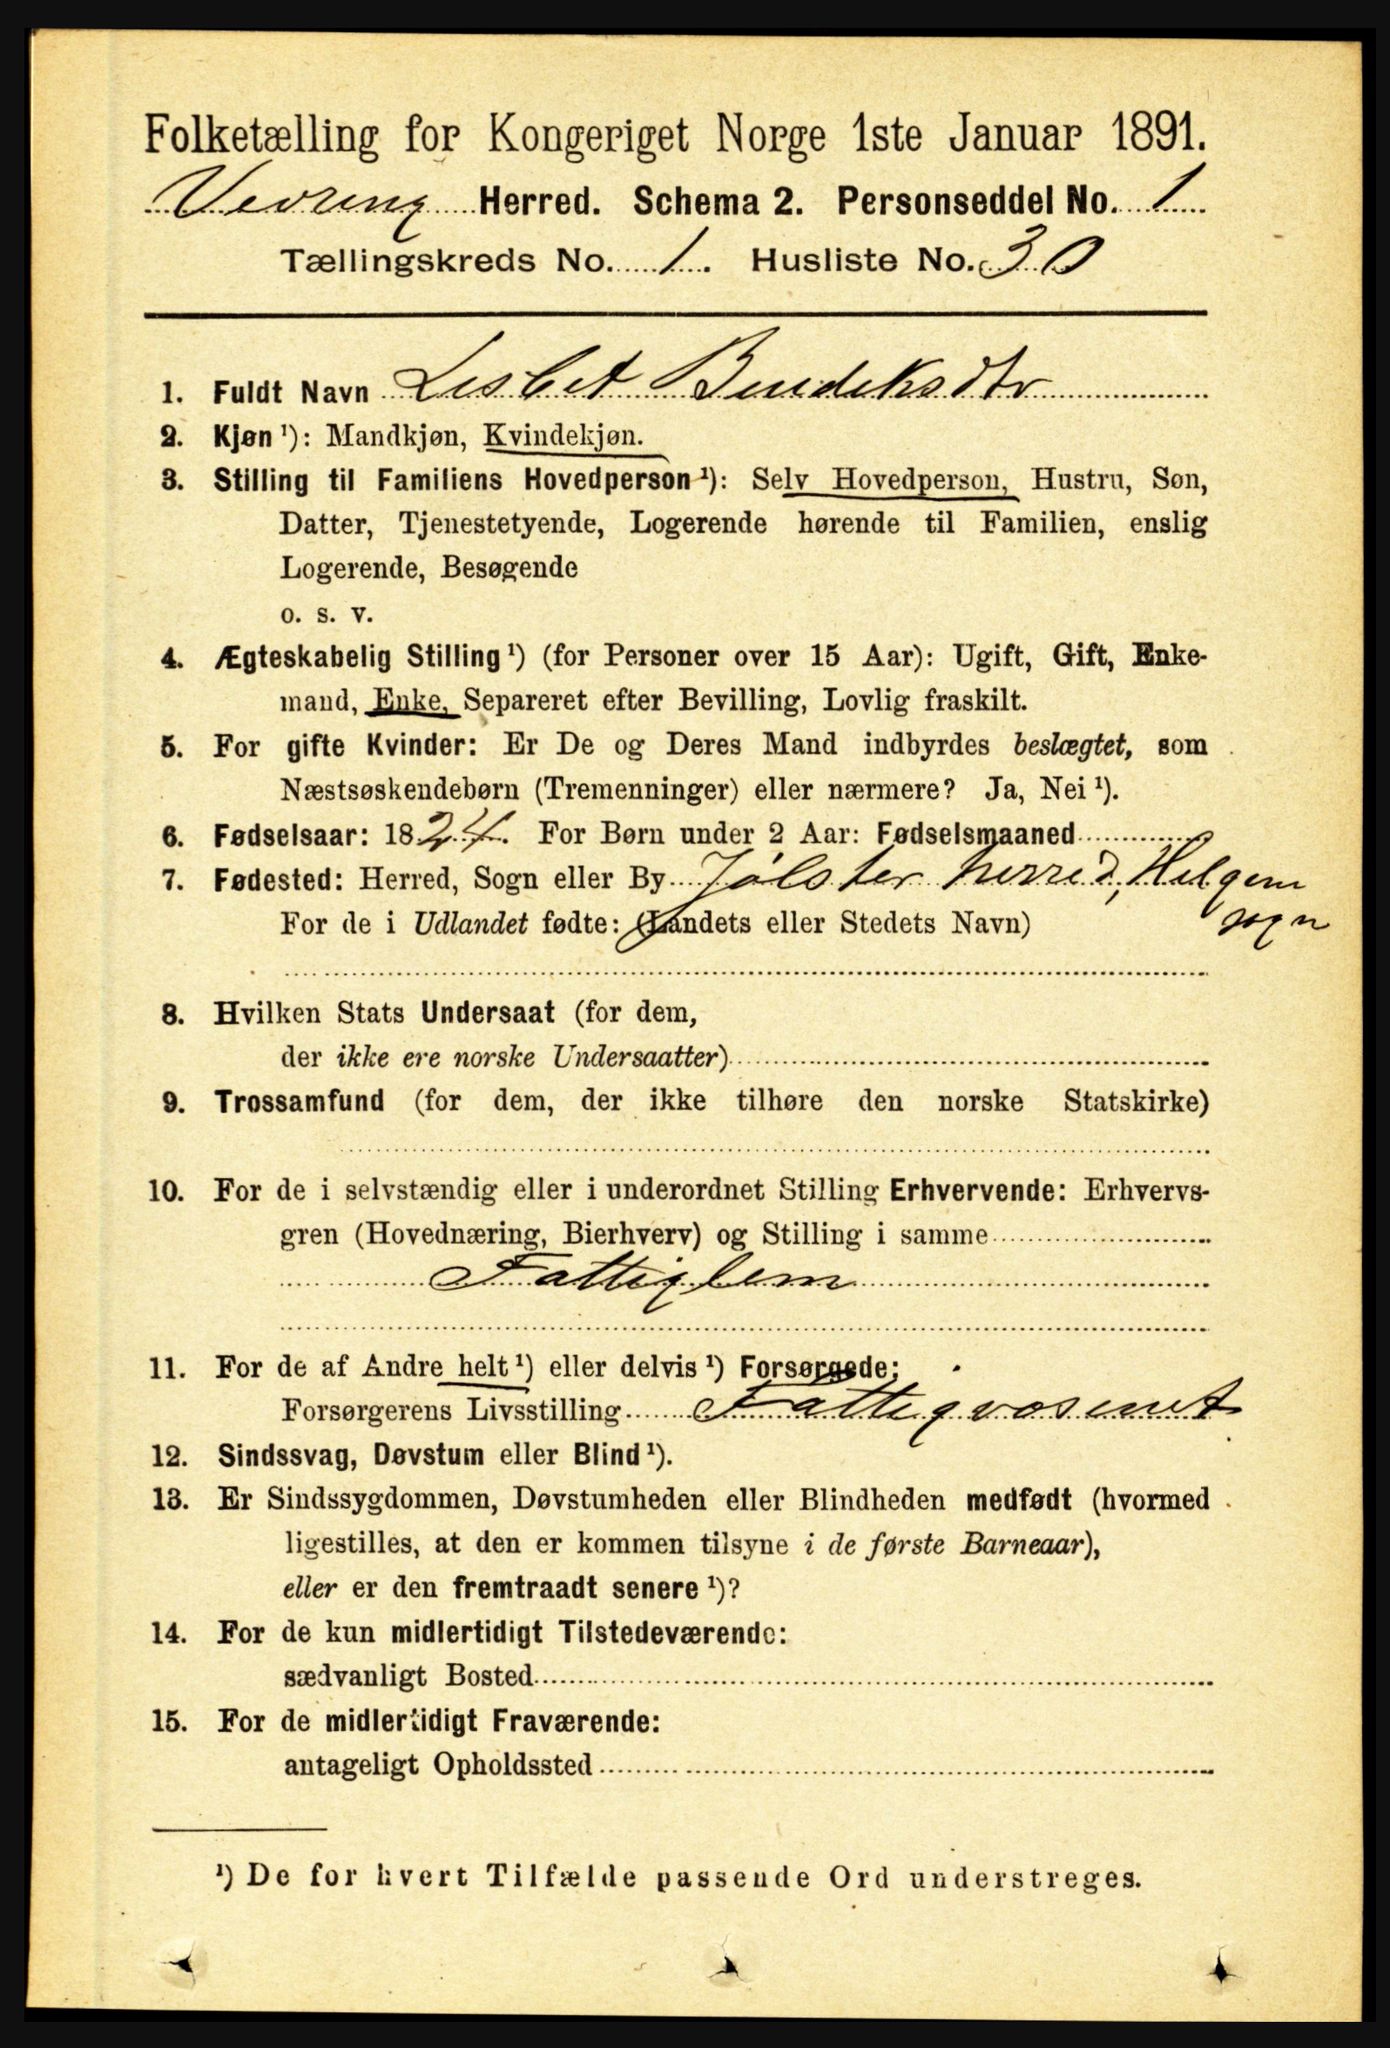 Folketælling for Kongeriget Norge 1ste Januar 1891.
Vevring Herred. Schema 2. Personseddel No. 1
Tællingskreds No. 1. Husliste No. 30
1. Fuldt Navn Lisbet Bendeksdtr
2. Kjøn ¹): Mandkjøn, Kvindekjøn.
3. Stilling til Familiens Hovedperson ¹): Selv Hovedperson, Hustru, Søn,
Datter, Tjenestetyende, Logerende hørende til Familien, enslig
Logerende, Besøgende
o. s. v.
4. Ægteskabelig Stilling ¹) (for Personer over 15 Aar): Ugift, Gift, Enke-
mand, Enke, Separeret efter Bevilling, Lovlig fraskilt.
5. For gifte Kvinder: Er De og Deres Mand indbyrdes beslægtet, som
Næstsøskendebørn (Tremenninger) eller nærmere? Ja, Nei ¹).
6. Fødselsaar: 1824. For Børn under 2 Aar: Fødselsmaaned
7. Fødested: Herred, Sogn eller By Jølster herred, Helgem
sogn
For de i Udlandet fødte: (Landets eller Stedets Navn)
8. Hvilken Stats Undersaat (for dem,
der ikke ere norske Undersaatter)
9. Trossamfund (for dem, der ikke tilhøre den norske Statskirke)
10. For de i selvstændig eller i underordnet Stilling Erhvervende: Erhvervs-
gren (Hovednæring, Bierhverv) og Stilling i samme
Fattiglem
11. For de af Andre helt ¹) eller delvis ¹) Forsørgede:
Forsørgerens Livsstilling Fattigvæsenet
12. Sindssvag, Døvstum eller Blind ¹).
13. Er Sindssygdommen, Døvstumheden eller Blindheden medfødt (hvormed
ligestilles, at den er kommen tilsyne i de første Barneaar),
eller er den fremtraadt senere ¹)?
14. For de kun midlertidigt Tilstedeværende:
sædvanligt Bosted
15. For de midlertidigt Fraværende:
antageligt Opholdssted
¹) De for hvert Tilfælde passende Ord understreges.